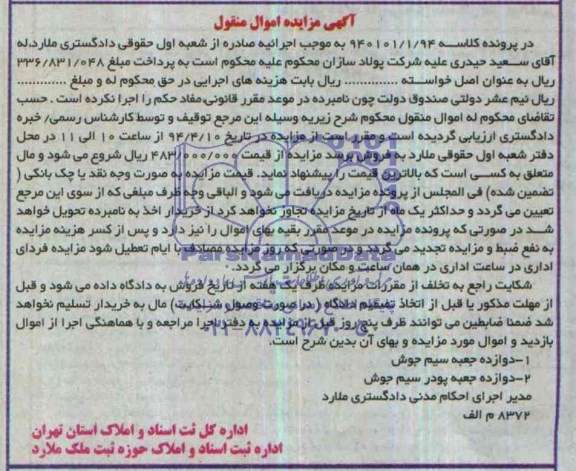 آگهی مزایده اموال منقول
در پرونده کلاسه ۹۴۰۱۰۱/۱/۹۴ به موجب اجرائیه صادره از شعبه اول حقوقی دادگستری ملارد،له
آقای سعید حیدری علیه شرکت پولاد سازان محکوم علیه محکوم است به پرداخت مبلغ ۳۳۶/۸۳۱/۰۴۸
ریال به عنوان اصل خواسته .............. ریال بابت هزینه های اجرایی در حق محکوم له و مبلغ ..............
ریال نیم عشر دولتی صندوق دولت چون نامبرده در موعد مقرر قانونی،مفاد حکم را اجرا نکرده است . حسب
تقاضای محکوم له اموال منقول محکوم شرح زیربه وسیله این مرجع توقیف و توسط کارشناس رسمی/ خبره
دادگستری ارزیابی گردیده است و مقرر است از مزایده در تاریخ ۹۴/۴/۱۰ از ساعت ۱۰ الی ۱۱ در محل
دفتر شعبه اول حقوقی ملارد به فروش برسد مزایده از قیمت ۴۸۳/۰۰۰/۰۰۰ ریال شروع می شود و مال
متعلق به کسی است که بالاترین قیمت را پیشنهاد نماید. قیمت مزایده به صورت وجه نقد یا چک بانکی (
تضمین شده) فی المجلس از پرونده مزایده دریافت می شود و الباقی وجه ظرف مبلغی که از سوی این مرجع
تعیین می گردد و حداکثر یک ماه از تاریخ مزایده تجاوز نخواهد کرد از خریدار اخذ به نامبرده تحویل خواهد
شد در صورتی که پرونده مزایده در موعد مقرر بقیه بهای اموال را نپردازد و پس از کسر هزینه مزایده
به نفع ضبط و مزایده تجدید می گردد و در صورتی که روز مزایده مصادف با ایام تعطیل شود مزایده فردای
اداری در ساعت اداری در همان ساعت و مکان برگزار می گردد.
شکایت راجع به تخلف از مقررات مزایده ظرف یک هفته از تاریخ فروش به دادگاه داده می شود و قبل
از مهلت مذکور یا قبل از اتخاذ تصمیم دادگاه ( در صورت وصول شکایت) مال به خریدار تسلیم نخواهد
شد ضمنا ضابطین می توانند ظرف پنج روز قبل از مزایده به دفتر اجرا مراجعه و با هماهنگی اجرا از اموال
بازدید و اموال مورد مزایده و بهای آن بدین شرح است.
۱-دوازده جعبه سیم جوش
۲-دوازده جعبه پودر سیم جوش
مدیر اجرای احکام مدنی دادگستری ملارد
۸۳۷۲ م الف
اداره کل ثت اسناد و املاک استان تهران
اداره ثبت اسناد و املاک حوزه ثبت ملک ملارد
ParsNamadData
۰۲۱-۸۸۳۴۹۶۷۰